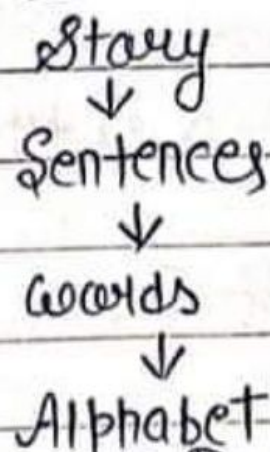 Story
↓
Sentences
↓
words
↓
Alphabet